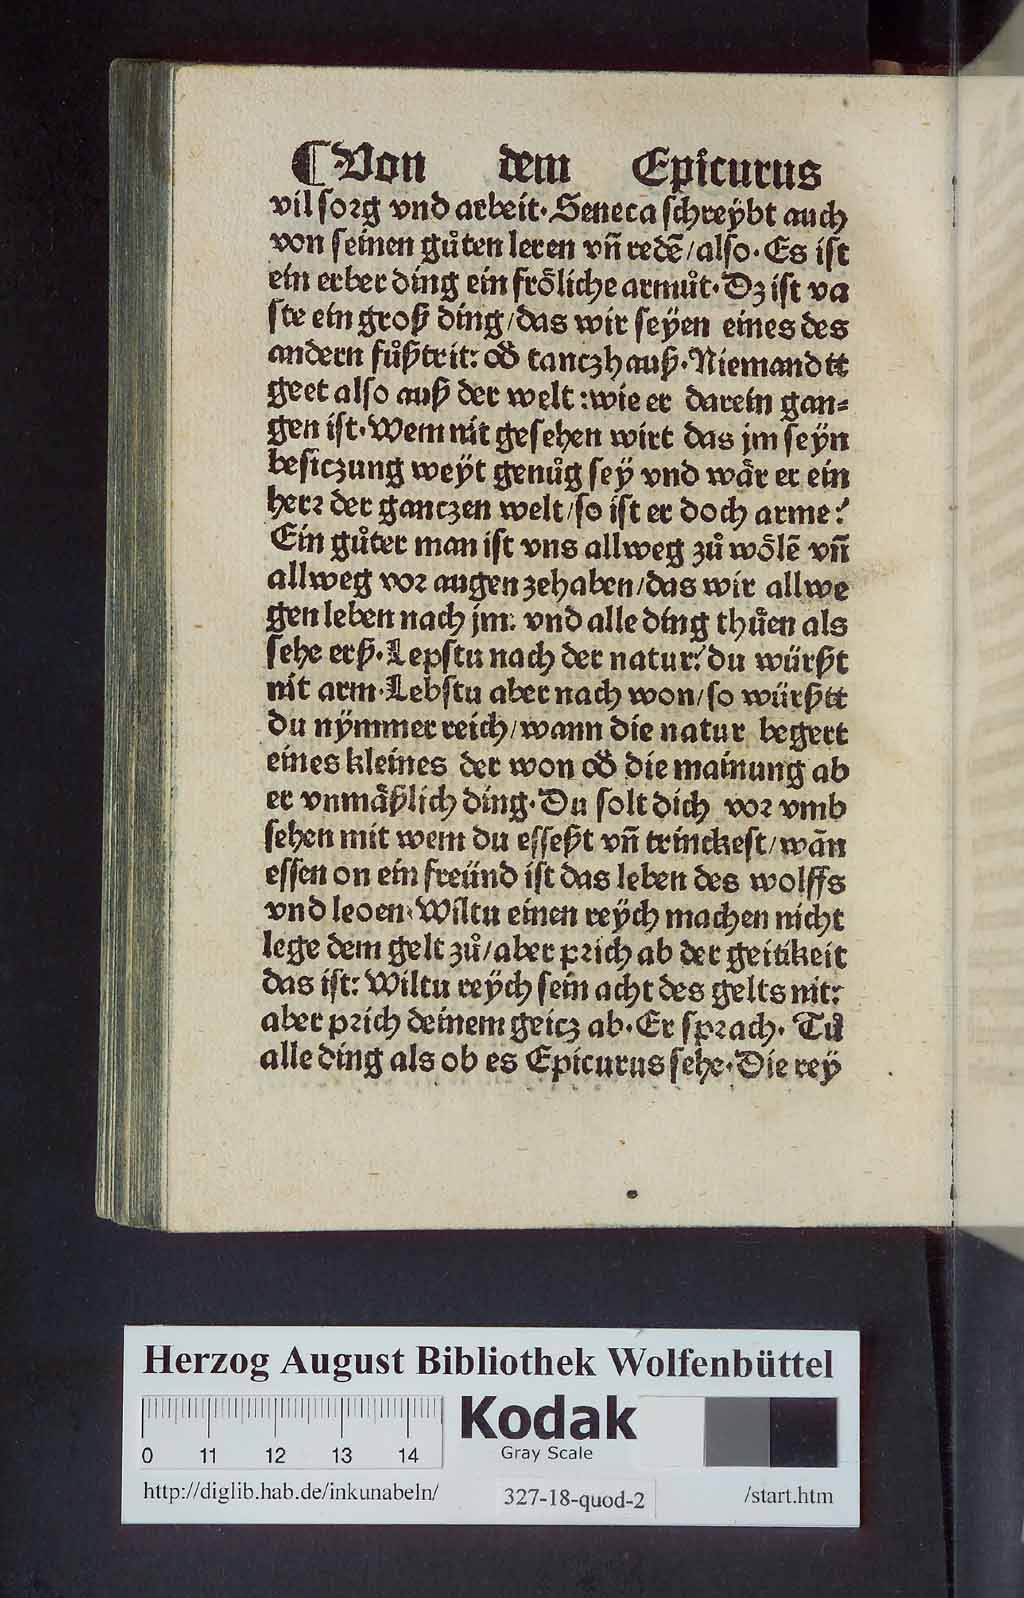 ¶ Von dem Epicurus
vil sorg vnd arbeit. Seneca schreÿbt auch
von seinen gůten leren vn̄ redē/also. Es ist
ein erber ding ein frôliche armůt. Dz ist va
ste ein groß ding/das wir seÿen eines des
andern fůßtrit: oď tanczhauß. Niemandtt
geet also auß der welt: wie er darein gan⸗
gen ist. Wem nit gesehen wirt das jm seÿn
besiczung weÿt genůg seÿ vnd wår er ein
herr der ganczen welt/so ist er doch arme:
Ein gůter man ist vns allweg zů wôlē vn̄
allweg vor augen zehaben/das wir allwe
gen leben nach jm. vnd alle ding thůen als
sehe erß. Lepstu nach der natur: du würßt
nit arm. Lebstu aber nach won/so würßtt
du nÿmmer reich/wann die natur begert
eines kleines der won oď die mainung ab
er vnmåßlich ding. Du solt dich vor vmb
sehen mit wem du essest vn̄ trinckest/wān
essen on ein freünd ist das leben des wolffs
vnd leoen. Wiltu einen reÿch machen nicht
lege dem gelt zů/aber prich ab der geitikeit
das ist: Wiltu reÿch sein acht des gelts nit:
aber prich deinem geicz ab. Er sprach. Tů
alle ding als ob es Epicurus sehe. Die reÿ
Herzog August Bibliothek Wolfenbüttel
0 11 12 13 14
Kodak
Gray Scale
http://diglib.hab.de/inkunabeln/ 327-18-quod-2 /start.htm